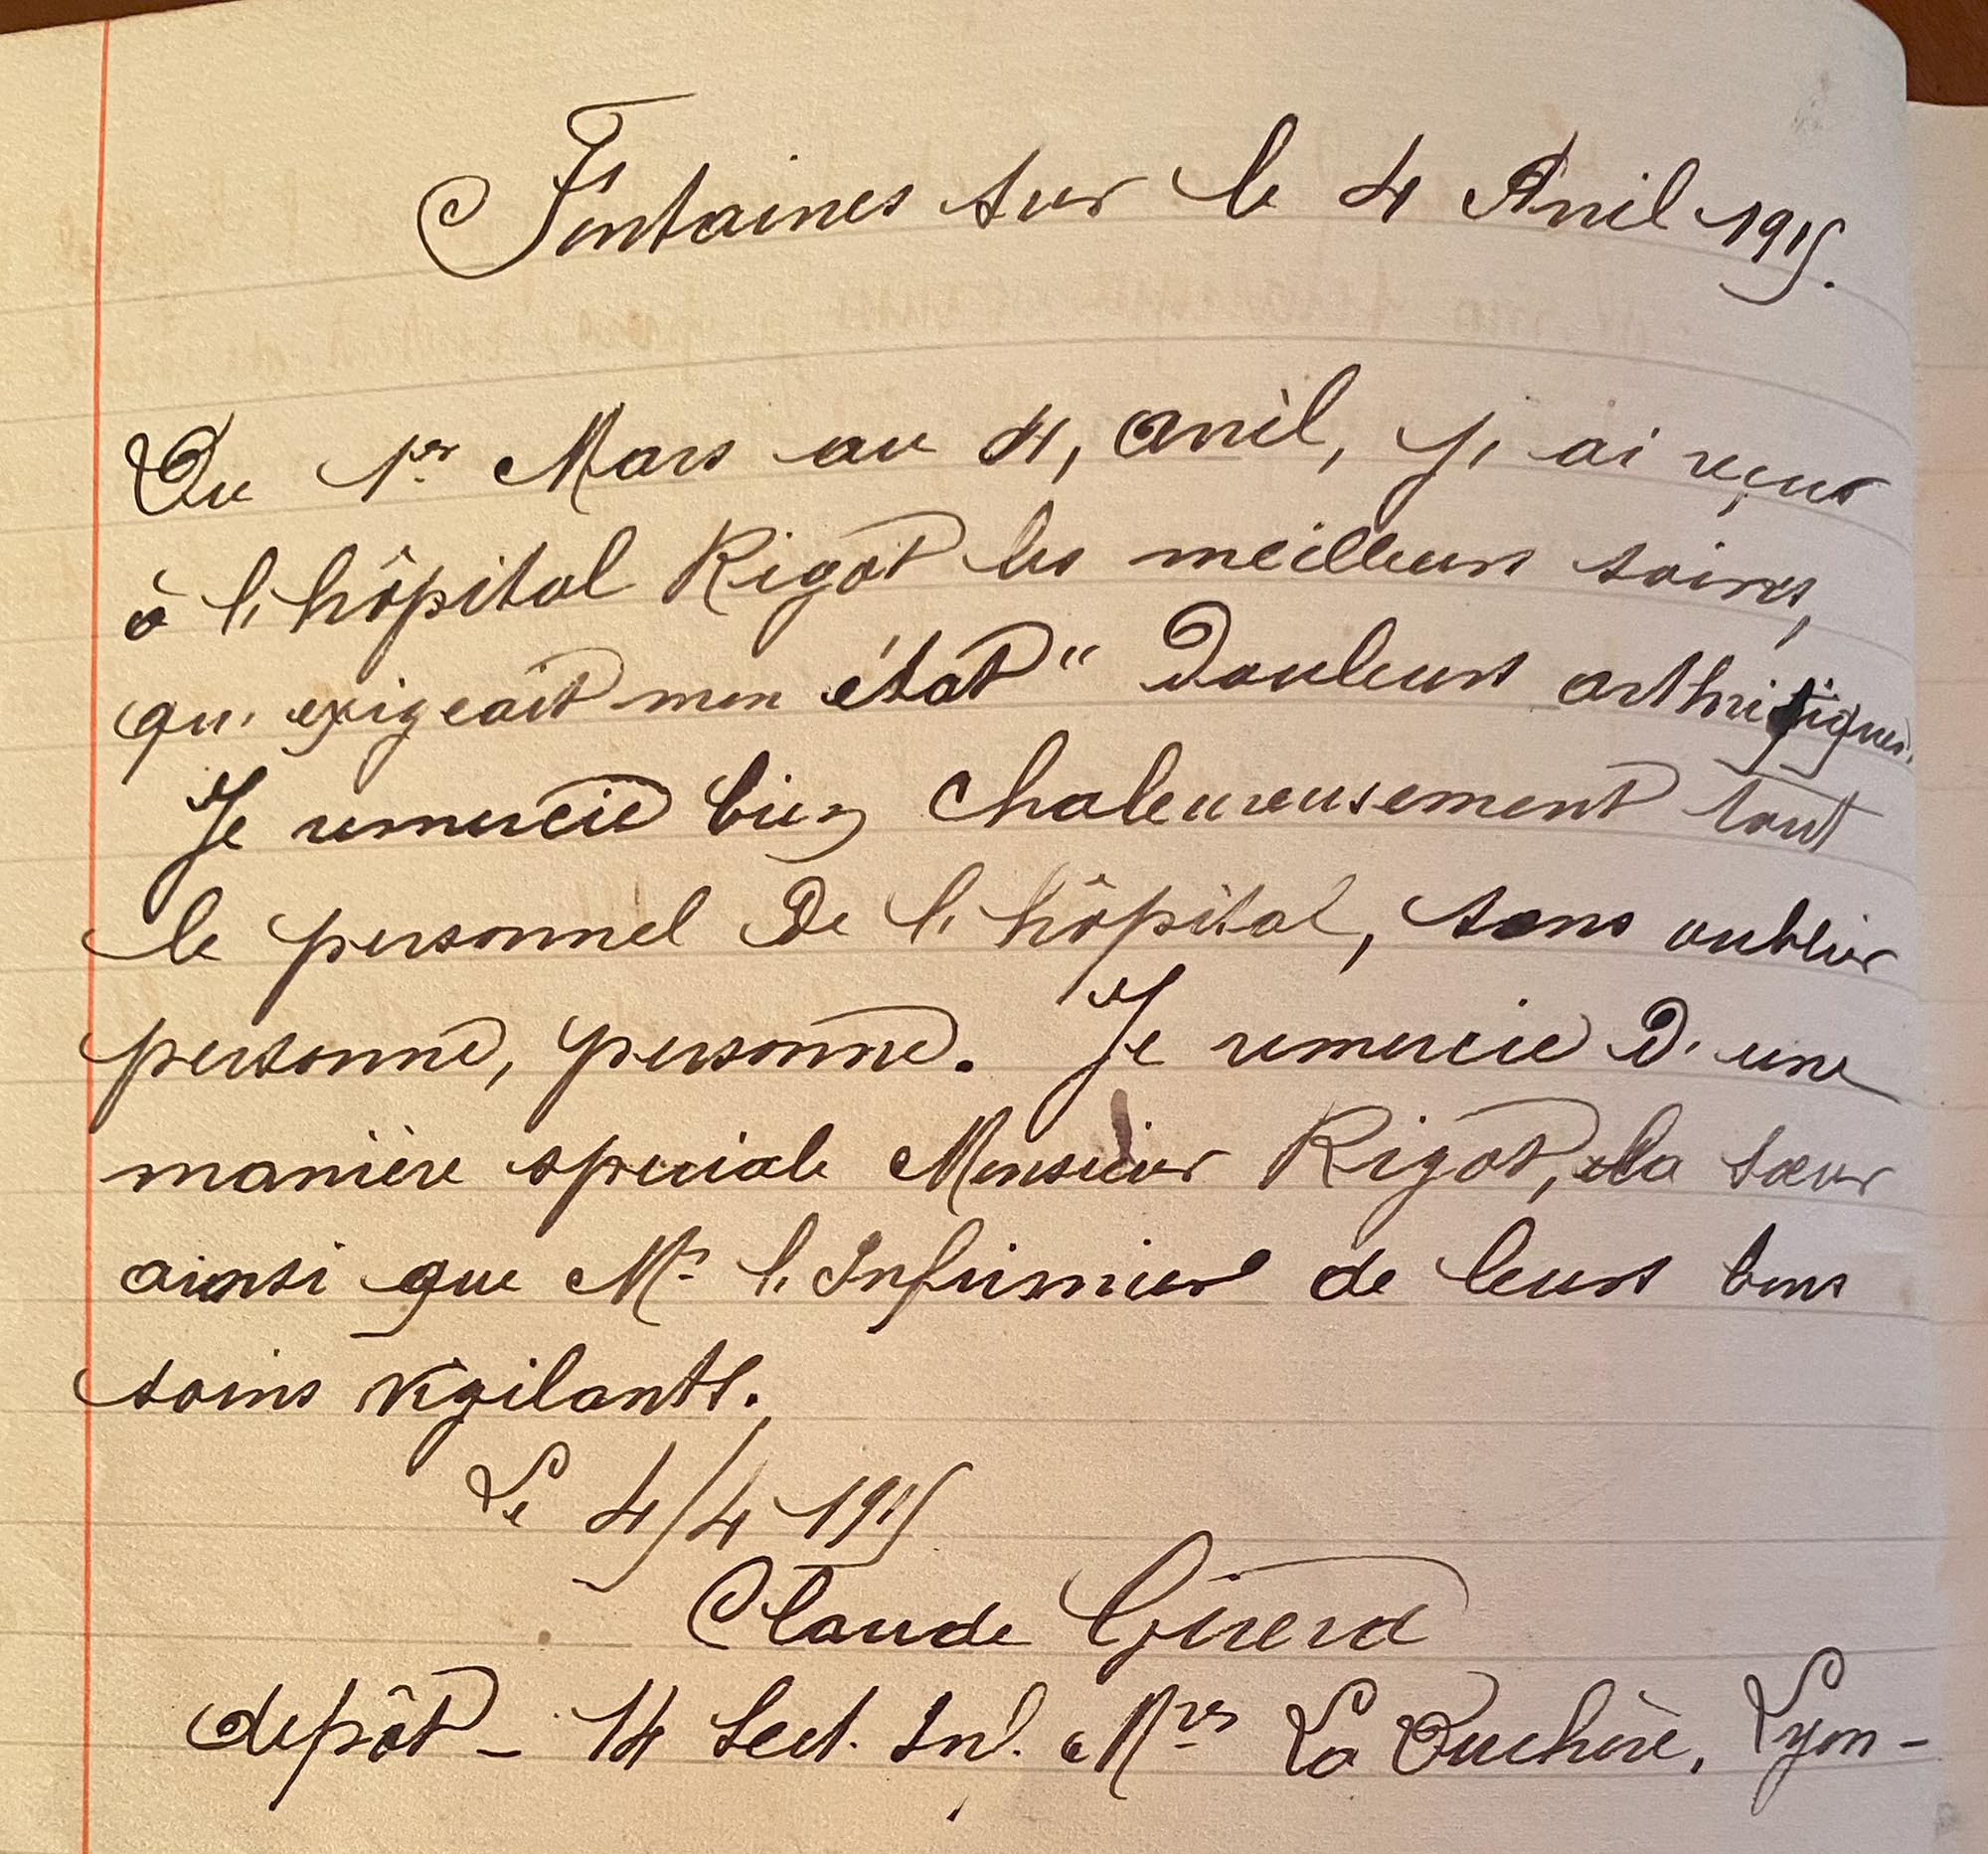 Fontaines sur le 4 Avril 1915.
Du 1er Mars au 4, avril, j'ai reçus
à l'hôpital Rigot les meilleurs soins,
qu'exigeait mon état" Douleurs arthritiques.
Je remercie bien chaleureusement tout
le personnel De l'hôpital, sans oublier
personne, personne. Je remercie D'une
manière speciale Monsieur Rigot, la sœur
ainsi que Mr l'Infirmier de leurs bons
soins vigilants.
Le 4/4 1915
Claude Girerd
depôt - 14 Sect. Inf. Mres La Duchère, Lyon-